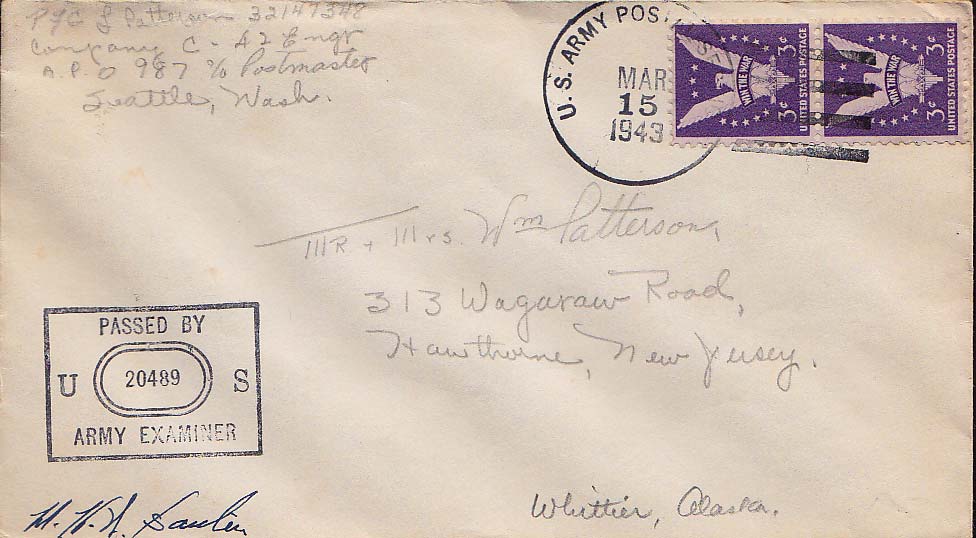 Pfc J Patterson 32147348
Company C - 42 Engr
A.P.O 987 % Postmaster
Seattle, Wash.
U.S. ARMY POSTAL
MAR
15
1943
WIN THE WAR
3¢
UNITED STATES POSTAGE
WIN THE WAR
3¢
UNITED STATES POSTAGE
MR + Mrs. Wm Patterson,
313 Wagaraw Road,
Hawthorne, New Jersey.
PASSED BY
U 20489 S
ARMY EXAMINER
Whittier, Alaska.